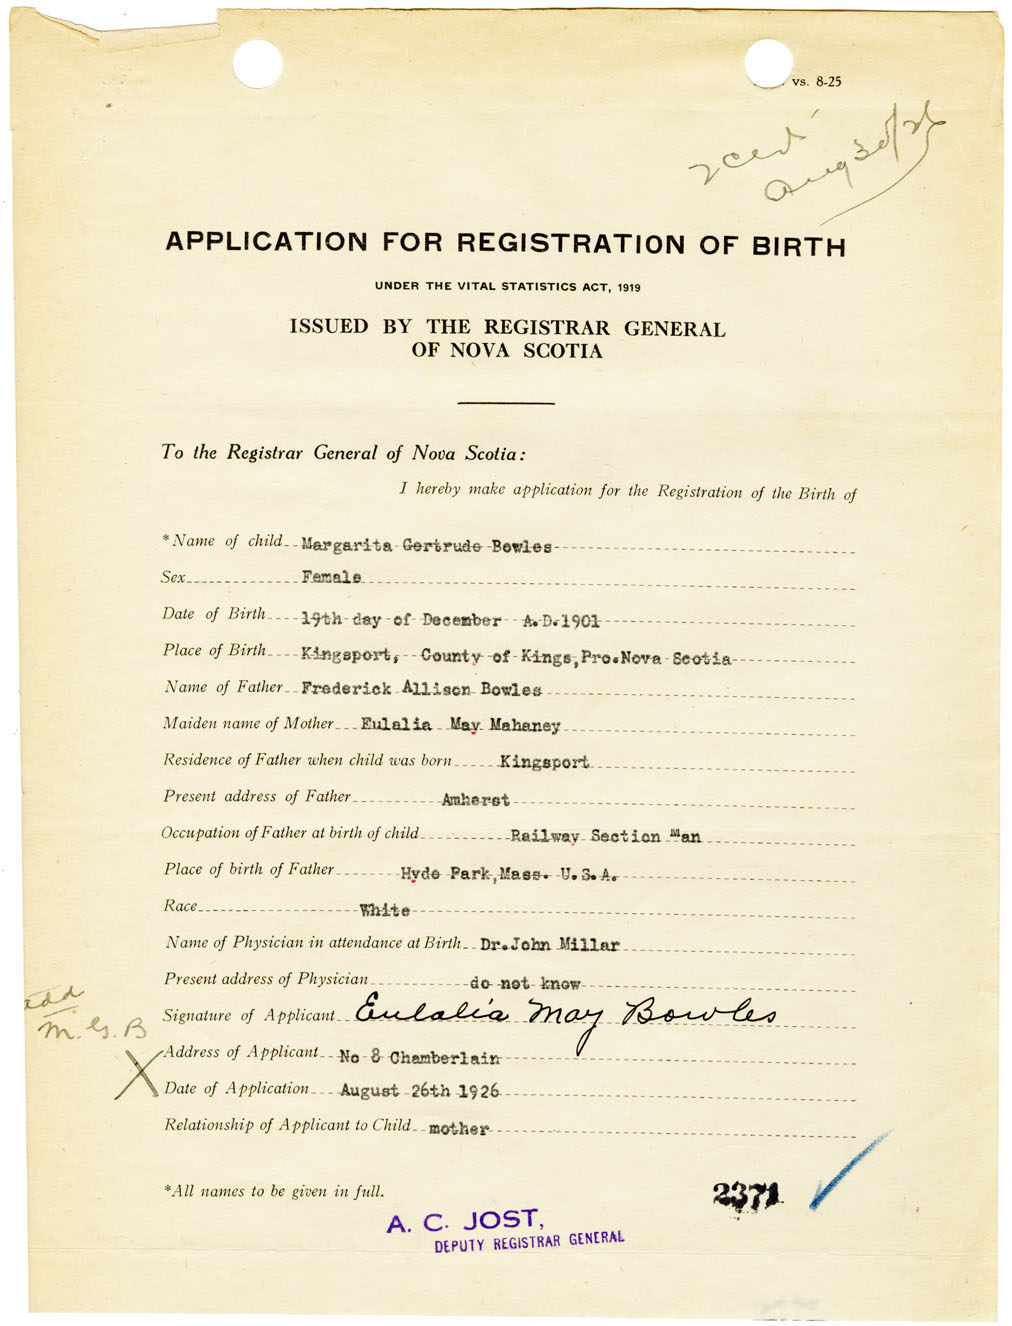 vs. 8-25
recd
Aug 30/26
APPLICATION FOR REGISTRATION OF BIRTH
UNDER THE VITAL STATISTICS ACT, 1919
ISSUED BY THE REGISTRAR GENERAL
OF NOVA SCOTIA
To the Registrar General of Nova Scotia:
I hereby make application for the Registration of the Birth of
*Name of child Margarita Gertrude Bowles
Sex Female
Date of Birth 19th day of December A.D.1901
Place of Birth Kingsport, County of Kings,Pro.Nova Scotia
Name of Father Frederick Allison Bowles
Maiden name of Mother Eulalia May Mahaney
Residence of Father when child was born Kingsport
Present address of Father Amherst
Occupation of Father at birth of child Railway Section Man
Place of birth of Father Hyde Park,Mass. U.S.A.
Race White
Name of Physician in attendance at Birth Dr.John Millar
Present address of Physician do not know
add
Signature of Applicant Eulalia May Bowles
M. G. B
Address of Applicant No 8 Chamberlain
X Date of Application August 26th 1926
Relationship of Applicant to Child mother
*All names to be given in full.
2371
A. C. JOST,
DEPUTY REGISTRAR GENERAL